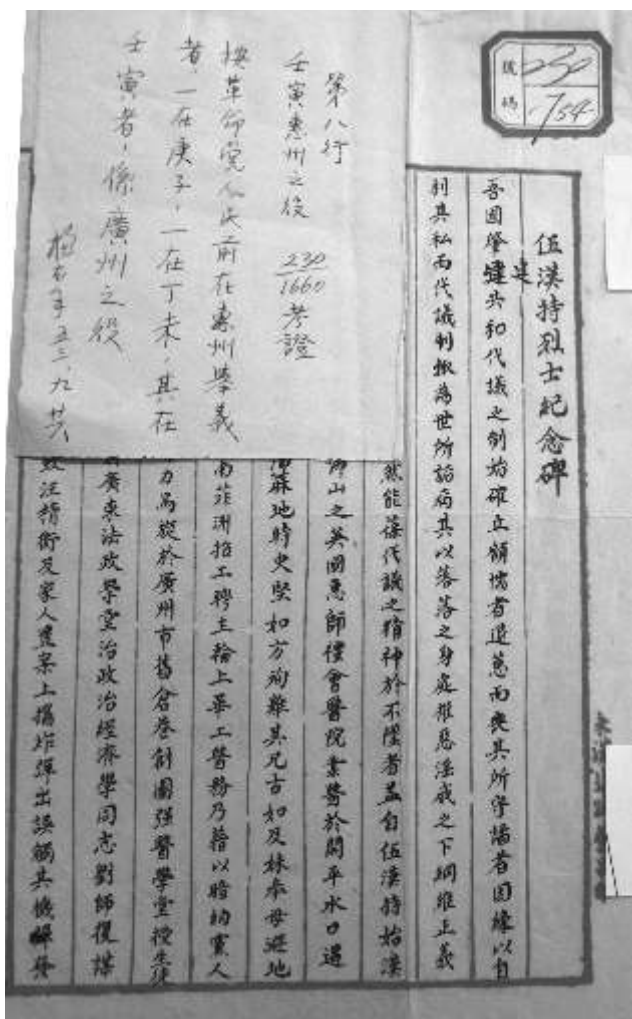 號碼
230
754
伍漢持烈士紀念碑
吾國肇建共和代議之制始確立頑懦者退葸而喪其所守譎者因緣以自
利其私而代議制輒為世所詬病其以落落之身處推惡淫威之下綱維正義
然能葆代議之精神於不墜者蓋自伍漢持始漢
佛山之英國惠師禮會醫院業醫於開平水口遇
麻地時史堅如方殉難其兄古如及妹奉母避地
南菲洲招工聘主輪上華工醫務乃藉以暗納黨人
力焉旋於廣州市舊倉巷創圖强醫學堂授生徒
廣東法政學堂治政治經濟學同志劉師復謀
汪精衛及家人置案上攜炸彈出誤觸其機轟發
第八行
壬寅惠州之役 230/1660 考證
按革命黨人民前在惠州舉義
者，一在庚子，一在丁未，其在
壬寅者，係廣州之役
五三、九、廿八